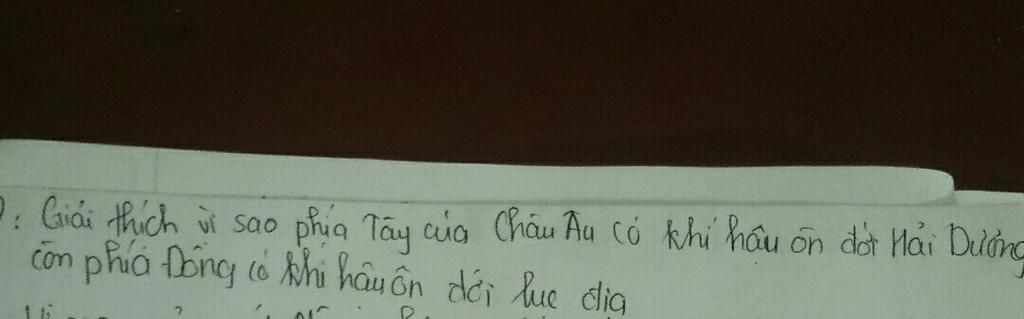 : Giải thích vì sao phía Tây của Châu Âu có khí hậu ôn đới Hải Dương
còn phía Đông có khí hậu ôn đới lục địa